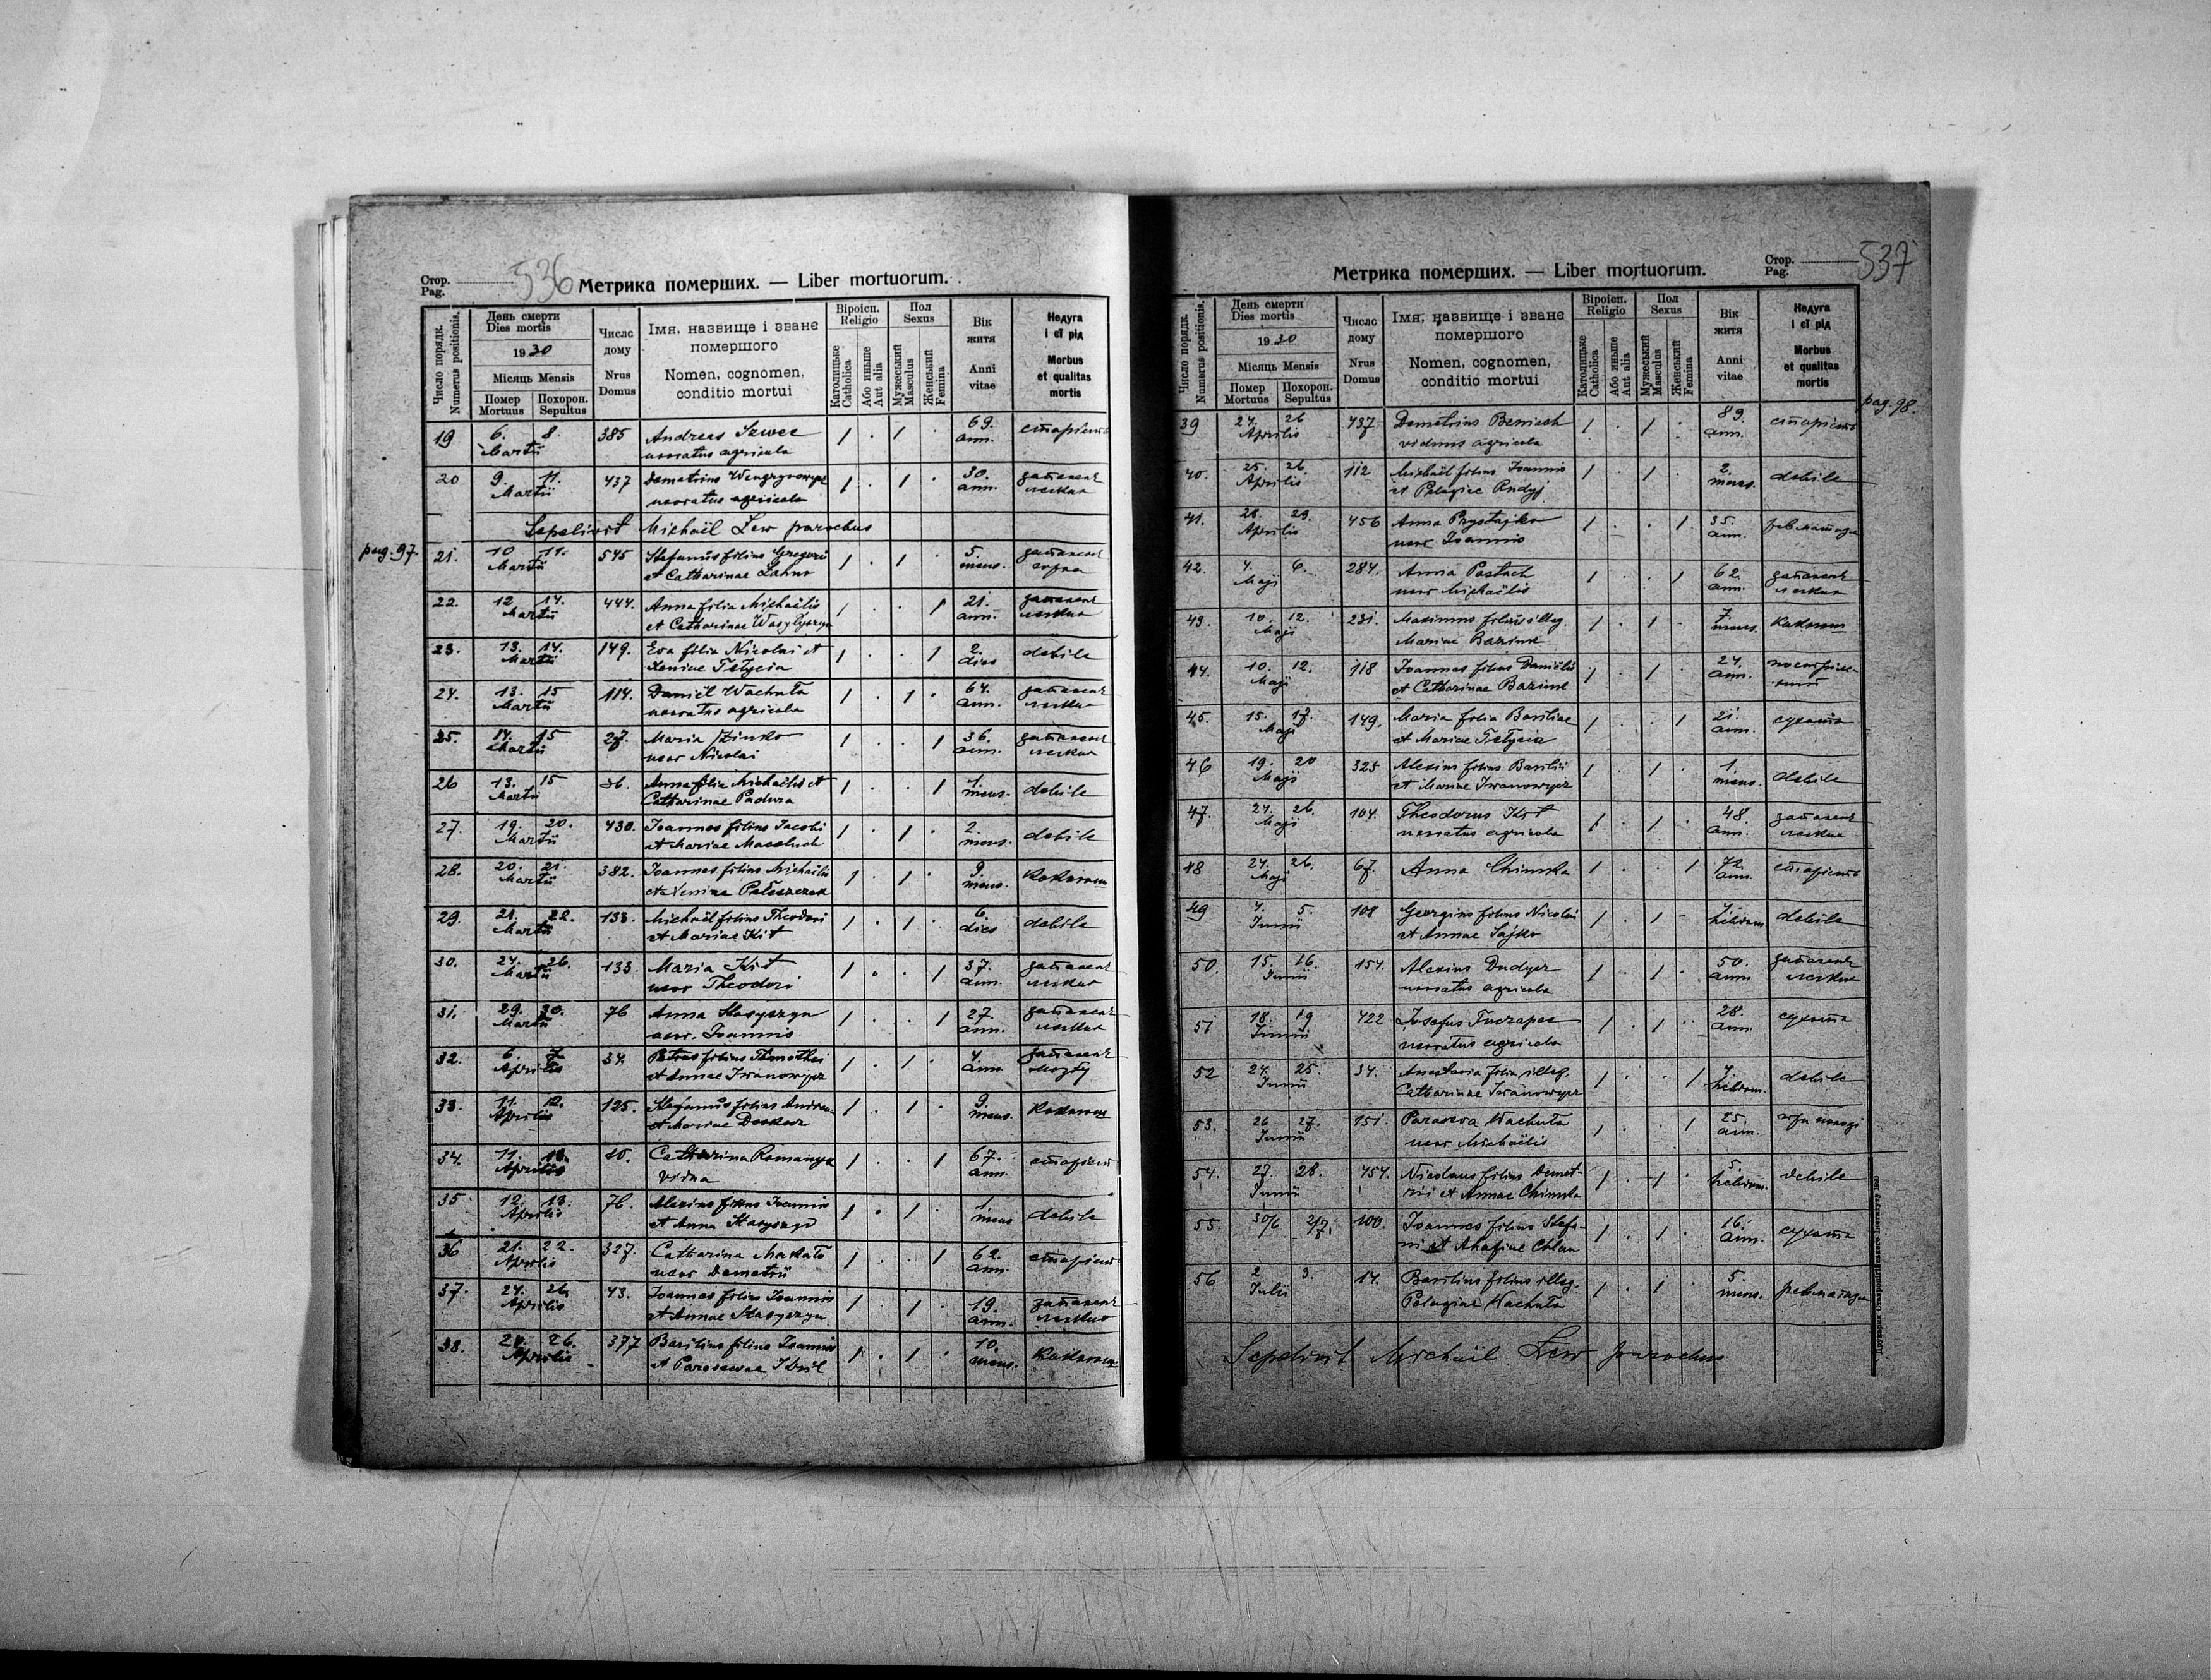 Стор. Pag. 536 Метрика померших. — Liber mortuorum.
Число порядк. Numerus positionis.
День смерти Dies mortis
1930
Місяць Mensis
Помер Mortuus
Похорон. Sepultus
Число дому Nrus Domus
Імя, назвище і зване помершого
Nomen, cognomen, conditio mortui
Віроісп. Religio
Католицьке Catholica
Або инньше Aut alia
Пол Sexus
Мужеський Masculus
Женський Femina
Вік життя Anni vitae
Недуга і єї рід
Morbus et qualitas mortis
19 6. 8. Martii 385 Andreas Szwec 1 . 1 . 69. ann. старість
uxoratus agricola
20 9. 11. Martii 437 Demetrius 1 . 1 . 30. ann. запаленє легких
uxoratus agricola
Sepelivit Michaël Lew parochus
pag. 97.
21. 10 11. Martii 545 Stefanus filius Gregorii 1 . 1 . 5. mens. запаленє горла
et Catharinae Lahno
22. 12 14. Martii 444. Anna filia Michaëlis 1 . . 1 21. ann. запаленє легких
et Catharinae Wasylyszyn
23. 13. 14. Martii 149. Eva filia Nicolai et 1 . . 1 2. dies debile
Xeniae Tetycia
24. 13. 15 Martii 114. Daniël Wachuła 1 . 1 . 64. ann. запаленє легких
uxoratus agricola
25. 14. 15 Martii 27. Maria Zinko 1 . . 1 36. ann. запаленє легких
uxor Nicolai
26 13. 15 Martii 36. Anna filia Michaëlis et 1 . . 1 1. mens. debile
Catharinae Padura
27. 19. 20. Martii 430. Ioannes filius Iacobi 1 . 1 . 2. mens. debile
et Mariae
28. 20. 21. Martii 382. Ioannes filius Michaëlis 1 . 1 . 9. mens. коклюш
et Xeniae
29. 21. 22. Martii 133. Michaël filius Theodori 1 . 1 . 6. dies debile
et Mariae Kit
30. 24. 26. Martii 133. Maria Kit 1 . . 1 37. ann. запаленє легких
uxor Theodori
31. 29. 30. Martii 76 Anna Stasyszyn 1 . . 1 27. ann. запаленє легких
uxor. Ioannis
32. 6. 7. Aprilis 34. Petrus filius Timothei 1 . 1 . 4. ann. запаленє мозгу
et Annae Iwanowycz
33. 11. 12. Aprilis 125. Stefanus filius 1 . 1 . 9. mens. коклюш
et Mariae
34. 11. 13. Aprilis 10. Catharina Romanyk 1 . . 1 67. ann. старість
vidua
35 12. 13. Aprilis 76. Alexius filius Ioannis 1 . 1 . 1 mens debile
et Anna Stasyszyn
36 21. 22. Aprilis 327. Catharina 1 . . 1 62. ann. старість
uxor Demetrii
37. 24. 26. Aprilis 43. Ioannes filius Ioannis 1 . 1 . 19. ann. запаленє легких
et Annae Stasyszyn
38. 24. 26. Aprilis 377 Basilius filius Ioannis 1 . 1 . 10. mens. коклюш
et Parascevae
Метрика померших. — Liber mortuorum. Стор. Pag. 537
Число порядк. Numerus positionis.
День смерти Dies mortis
1930
Місяць Mensis
Помер Mortuus
Похорон. Sepultus
Число дому Nrus Domus
Імя, назвище і зване помершого
Nomen, cognomen, conditio mortui
Віроісп. Religio
Католицьке Catholica
Або инньше Aut alia
Пол Sexus
Мужеський Masculus
Женський Femina
Вік життя Anni vitae
Недуга і єї рід
Morbus et qualitas mortis
pag. 98.
39 24. 26 Aprilis 437 Demetrius 1 . 1 . 89. ann. старість
viduus agricola
40. 25. 26. Aprilis 112 Michaël filius Ioannis 1 . 1 . 2. mens. debile
et Pelagiae Rudyj
41. 28. 29. Aprilis 456 Anna Prystajko 1 . . 1 35. ann.
uxor Ioannis
42. 4. 6. Maji 284. Anna Pastuch 1 . . 1 62. ann. запаленє легких
uxor Michaëlis
43. 10. 12. Maji 231. Maximus filius illeg. 1 . 1 . 7. mens. коклюш
Mariae
44. 10. 12. Maji 118 Ioannes filius Daniëlis 1 . 1 . 24. ann.
et Catharinae
45. 15. 17. Maji 149. Maria filia Basilii 1 . . 1 21. ann. сухота
et Mariae Tetycia
46 19. 20 Maji 325 Alexius filius Basilii 1 . 1 . 1. mens. debile
et Mariae Iwanowycz
47. 24. 26. Maji 104. Theodorus Kit 1 . 1 . 48. ann. запаленє легких
uxoratus agricola
48 24. 26. Maji 67. Anna Chimka 1 . . 1 72. ann. старість
49 4. 5. Iunii 108 Georgius filius Nicolai 1 . 1 . hebdom. debile
et Annae Sajko
50. 15. 16. Iunii 154. Alexius Dudycz 1 . 1 . 50. ann запаленє легких
uxoratus agricola
51 18. 19 Iunii 422 Iosefus 1 . 1 . 28. ann. сухота
uxoratus agricola
52 24. 25. Iunii 34. Anastasia filia illeg. 1 . . 1 hebdom. debile
Catharinae Iwanowycz
53. 26 27. Iunii 151. Parasceva Wachuła 1 . . 1 25. ann.
uxor Michaëlis
54. 27. 28. Iunii 454. Nicolaus filius Demet- 1 . 1 . 5. hebdom. debile
rii et Annae Chimka
55. 30/6 2/7. 100. Ioannes filius Stefa- 1 . 1 . 16. ann. сухота
ni et Ahafiae Chlan
56 2 3. Iulii 14. Basilius filius illeg. 1 . 1 . 5. mens.
Pelagiae Wachuła
Sepelivit Michaël Lew parochus